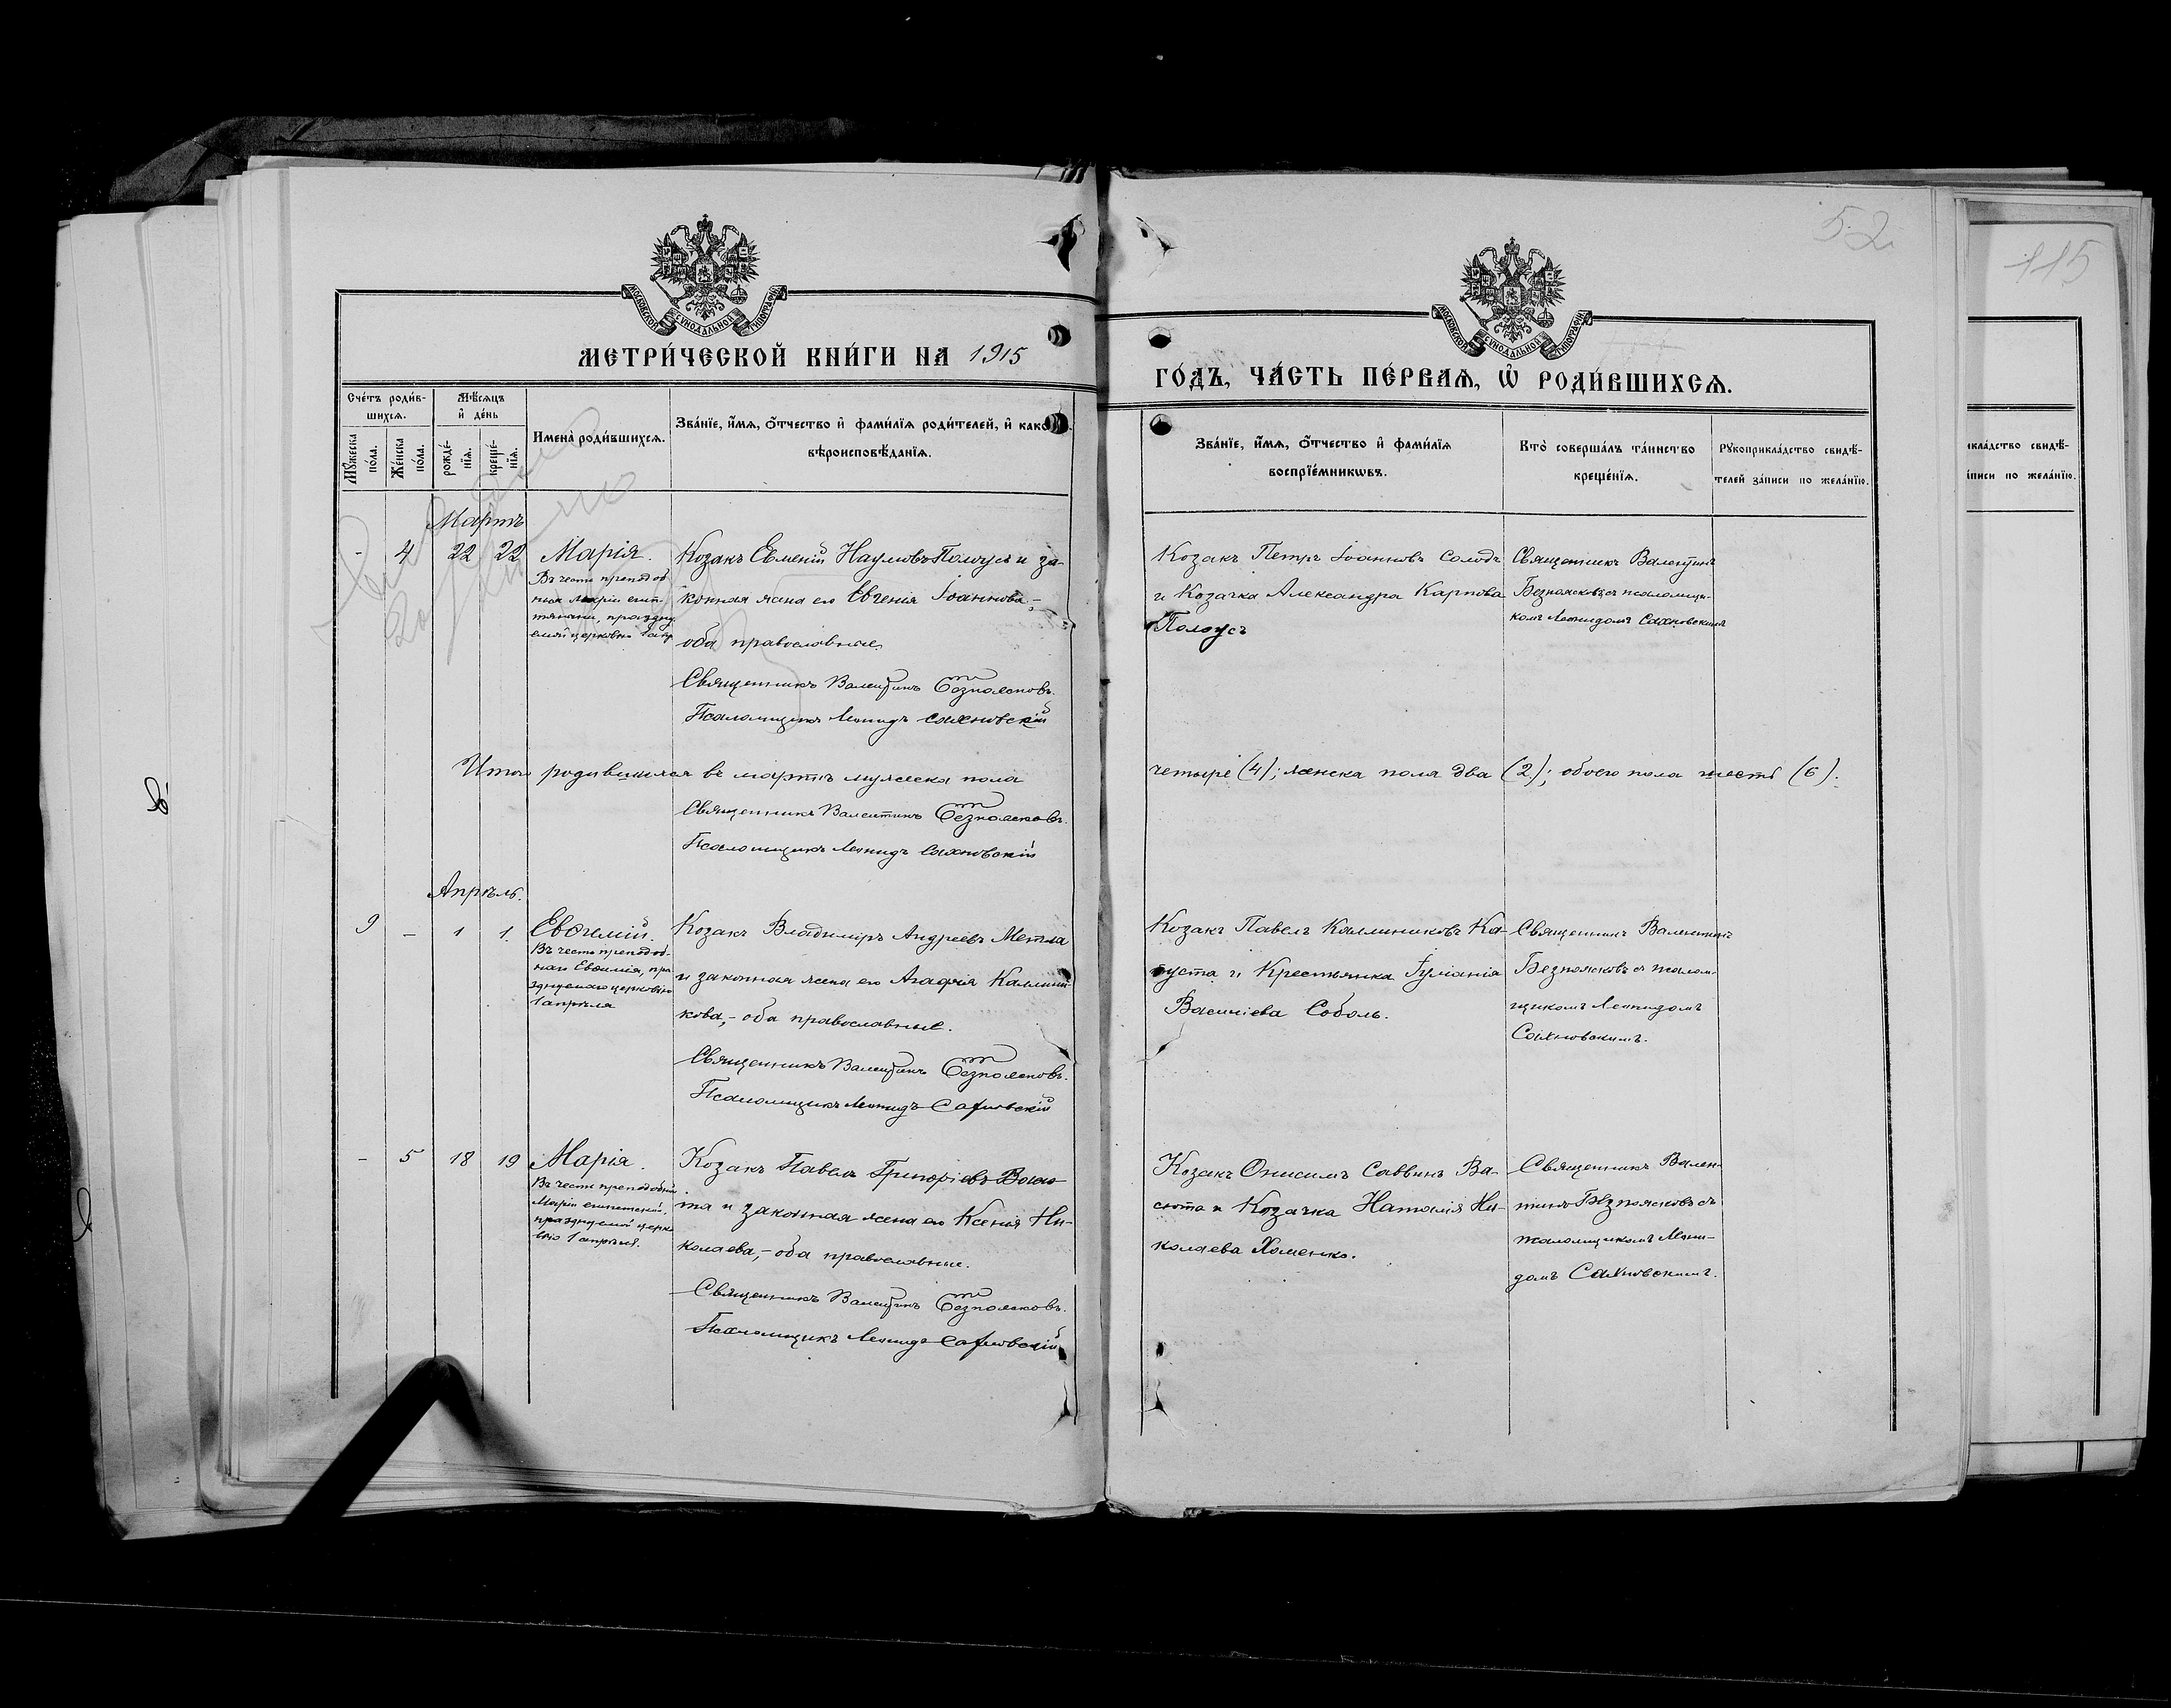 52
115
МОСКОВСКОЙ СУНОДАЛЬНОЙ ТИПОГРАФІИ
МОСКОВСКОЙ СУНОДАЛЬНОЙ ТИПОГРАФІИ
МЕТРИ́ЧЕСКОЙ КНИ́ГИ НА 1915
ГО́ДЪ, ЧА́СТЬ ПЕ́РВАѦ, Ѡ҆ РОДИ́ВШИХСѦ.
Сче́тъ роди́в-
шихсѧ.
Мꙋ́жеска
по́ла.
Же́нска
по́ла.
Мѣ́сѧцъ
и҆ де́нь
рожде́-
нїѧ.
креще́-
нїѧ.
Имена̀ роди́вшихсѧ.
Зва́нїе, и҆́мѧ, ѻ҆́тчество и҆ фами́лїѧ роди́телей, и҆ како
вѣроисповѣ́данїѧ.
Зва́нїе, и҆́мѧ, ѻ҆́тчество и҆ фами́лїѧ
воспрїе́мникѡвъ.
Кто̀ соверша́лъ та́инство
креще́нїѧ.
Рꙋкоприкла́дство свидѣ́-
телей за́писи по жела́нїю.
икла́дство свидѣ́-
а́писи по жела́нїю.
Мартъ
- 4 22 22 Марія.
Въ честь преподоб
ныя Маріи егип-
тяныни, праздну
емой церковью 1 апр
Козакъ Евменій Наумовъ Полоусъ и за-
конная жена его Евгенія Іоаннова,-
оба православные.
Священникъ Валентинъ Безпоясковъ.
Псаломщикъ Леонидъ Сахновскій
Козакъ Петръ Іоанновъ Солодъ
и Козачка Александра Карпова
Полоусъ
Священникъ Валентинъ
Безпоясковъ съ псаломщи-
комъ Леонидомъ Сахновскимъ
Итого родившихся въ мартѣ мужеска пола
четыре (4); женска пола два (2); обоего пола шесть (6).
Священникъ Валентинъ Безпоясковъ.
Псаломщикъ Леонидъ Сахновскій
Апрѣль.
9 - 1 1. Евѳимій.
Въ честь преподоб-
наго Евѳимія, пра
зднуемаго церковью
1 апрѣля
Козакъ Владиміръ Андреевъ Метла
и законная жена его Агафія Каллини-
кова,- оба православные.
Священникъ Валентинъ Безпоясковъ.
Псаломщикъ Леонидъ Сахновскій
Козакъ Павелъ Каллиниковъ Ка-
пуста и Крестьянка Іуліанія
Васильева Соболь.
Священникъ Валентинъ
Безпоясковъ съ псалом-
щикомъ Леонидомъ
Сахновскимъ.
- 5 18 19 Марія.
Въ честь преподобной
Маріи египетской,
празднуемой церко
вью 1 апрѣля.
Козакъ Павелъ Григоріевъ
та и законная жена его Ксенія Ни-
колаева,- оба православные.
Священникъ Валентинъ Безпоясковъ.
Псаломщикъ Леонидъ Сахновскій
Козакъ Онисимъ Саввинъ Ва-
сюта и Козачка Наталія Ни-
колаева Хоменко.
Священникъ Вален-
тинъ Безпоясковъ съ
псаломщикомъ Леони-
домъ Сахновскимъ.